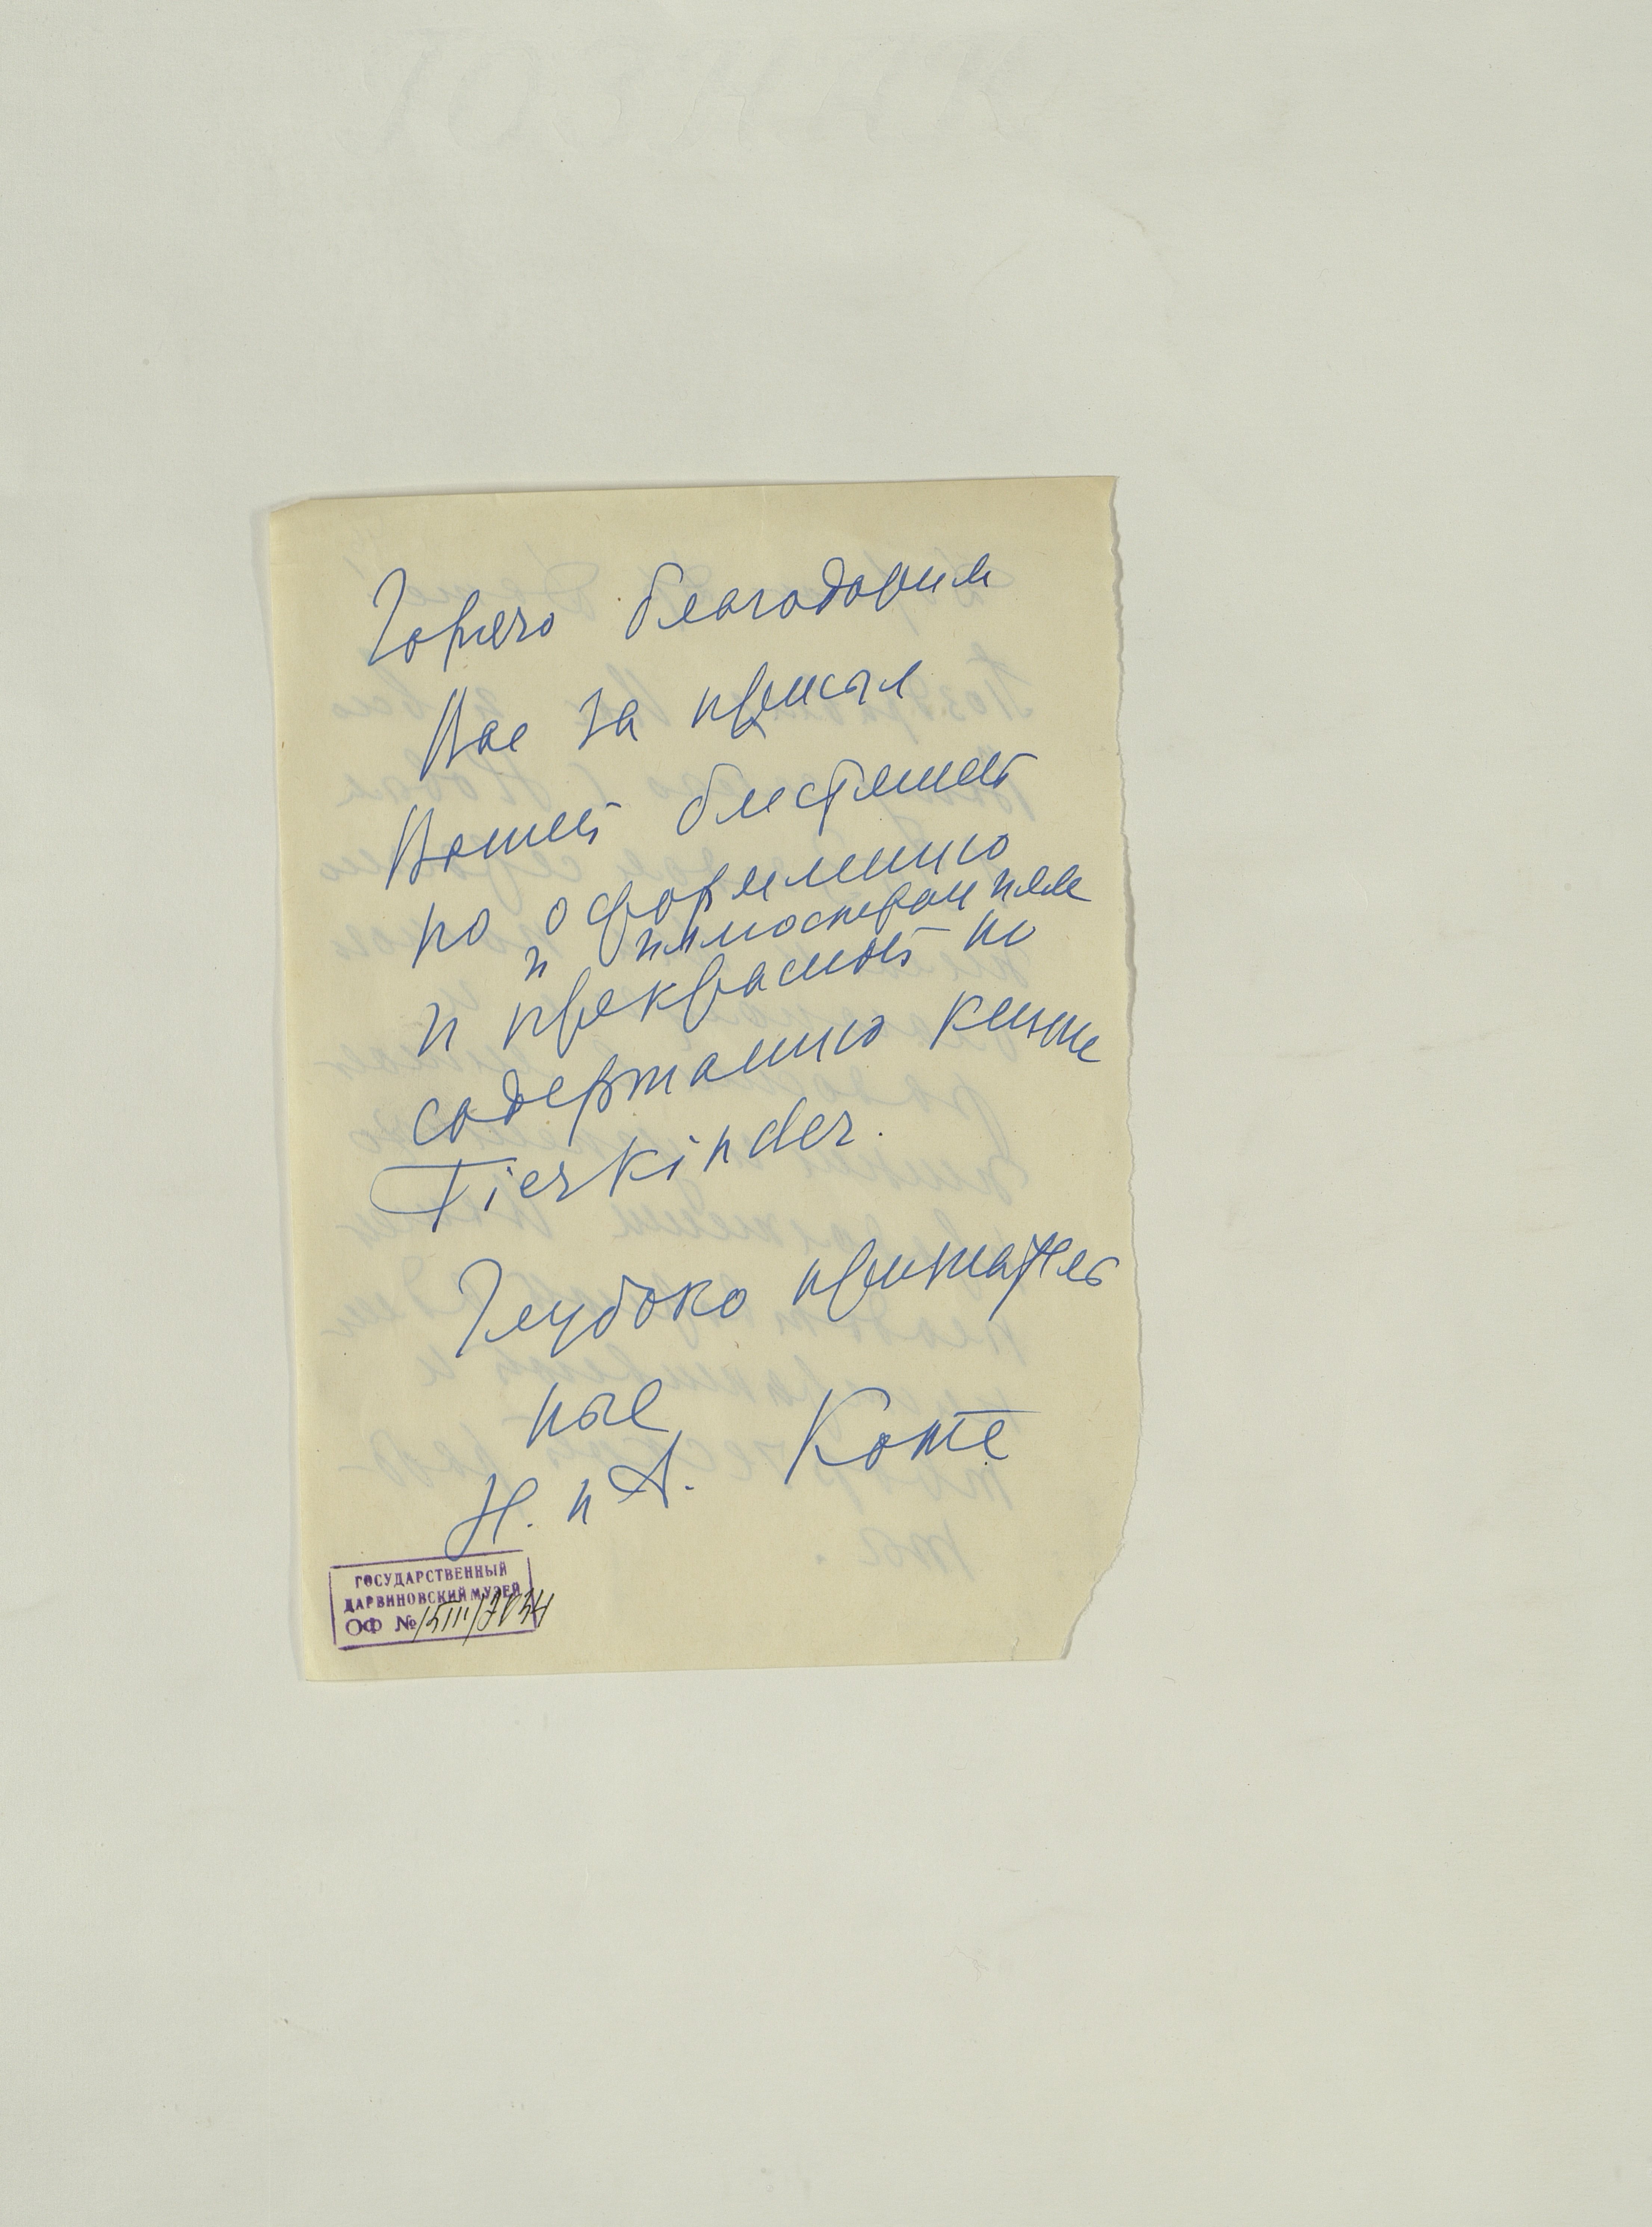 Горячо благодарим
Вас за присыл
Вашей блестящей
по оформлению
и иллюстрациям
и прекрасной по
содержанию книги
Tierkinder.
Глубоко признатель
ные
Н. и А. Котс
ГОСУДАРСТВЕННЫЙ
ДАРВИНОВСКИЙ МУЗЕЙ
ОФ №